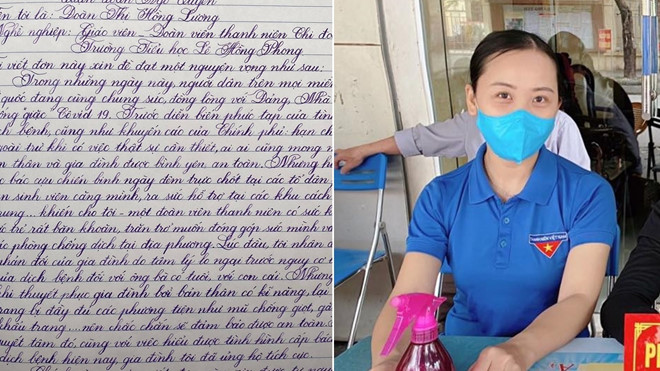 Tên tôi là: Đoàn Thị Hồng Lương
Nghề nghiệp: Giáo viên - Đoàn viên thanh niên Chi đo
Trường Tiểu học Lê Hồng Phong
viết đơn này xin đề đạt một nguyện vọng như sau:
Trong những ngày này, người dân trên mọi miền
quốc đang cùng chung sức, đồng lòng với Đảng, Nhà
chống giặc Covid 19. Trước diễn biến phức tạp của tìn
dịch bệnh, cũng như khuyến cáo của Chính phủ: hạn ch
ngoài trừ khi có việc thật sự cần thiết, ai ai cũng mong
n thân và gia đình được bình yên, an toàn. Nhưng h
bác cựu chiến binh ngày đêm trực chốt tại các tổ dân
sinh viên căng mình, ra sức hỗ trợ tại các khu cách
ung... khiến cho tôi - một đoàn viên thanh niên có sức k
trẻ rất băn khoăn, trăn trở muốn đóng góp sức mình v
phòng chống dịch tại địa phương. Lúc đầu, tôi nhận đ
phản đối của gia đình do tâm lý e ngại trước nguy cơ l
của dịch bệnh đối với ông bà có tuổi, với con cái. Nhưng
khi thuyết phục gia đình bởi bản thân có kĩ năng, lại
trang bị đầy đủ các phương tiện như mũ chống giọt, gă
khẩu trang...nên chắc chắn sẽ đảm bảo được an toàn.
quyết tâm đó, cùng với việc hiểu được tình hình cấp bác
dịch bệnh hiện nay, gia đình tôi đã ủng hộ tích cực.
THANH NIÊN VIỆT NAM